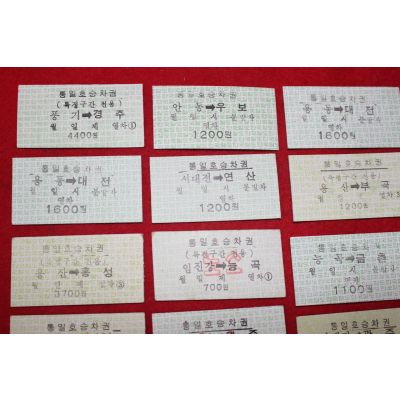 통일호승차권
(특정구간 전용)
풍기➡경주
월 일 제 열차①
4400원
통일호승차권
안동➡우보
월 일 시 분발차
열차
1200원
통일호승차권
➡대전
월 일 시 분발차
열차
1600원
통일호승차권
➡대전
월 일 시 분발차
열차
1600원
통일호승차권
서대전➡연산
월 일 시 분발차
열차
1200원
통일호승차권
(특정구간 전용)
용산➡부곡
월 일 제 열차
1200원
통일호승차권
(특정구간 전용)
용산➡홍성
월 일 제 열차③
3700원
통일호승차권
(특정구간 전용)
임진강➡능곡
월 일 제 열차①
700원
통일호승차권
월 일 시 분발차
열차
1100원
통일호승차권
통일호승차권
통일호승차권